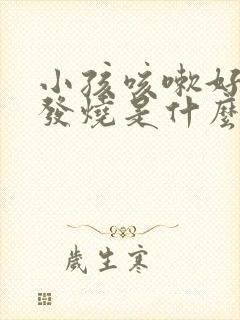 小孩咳嗽好
發燒是什麼
歲生寒